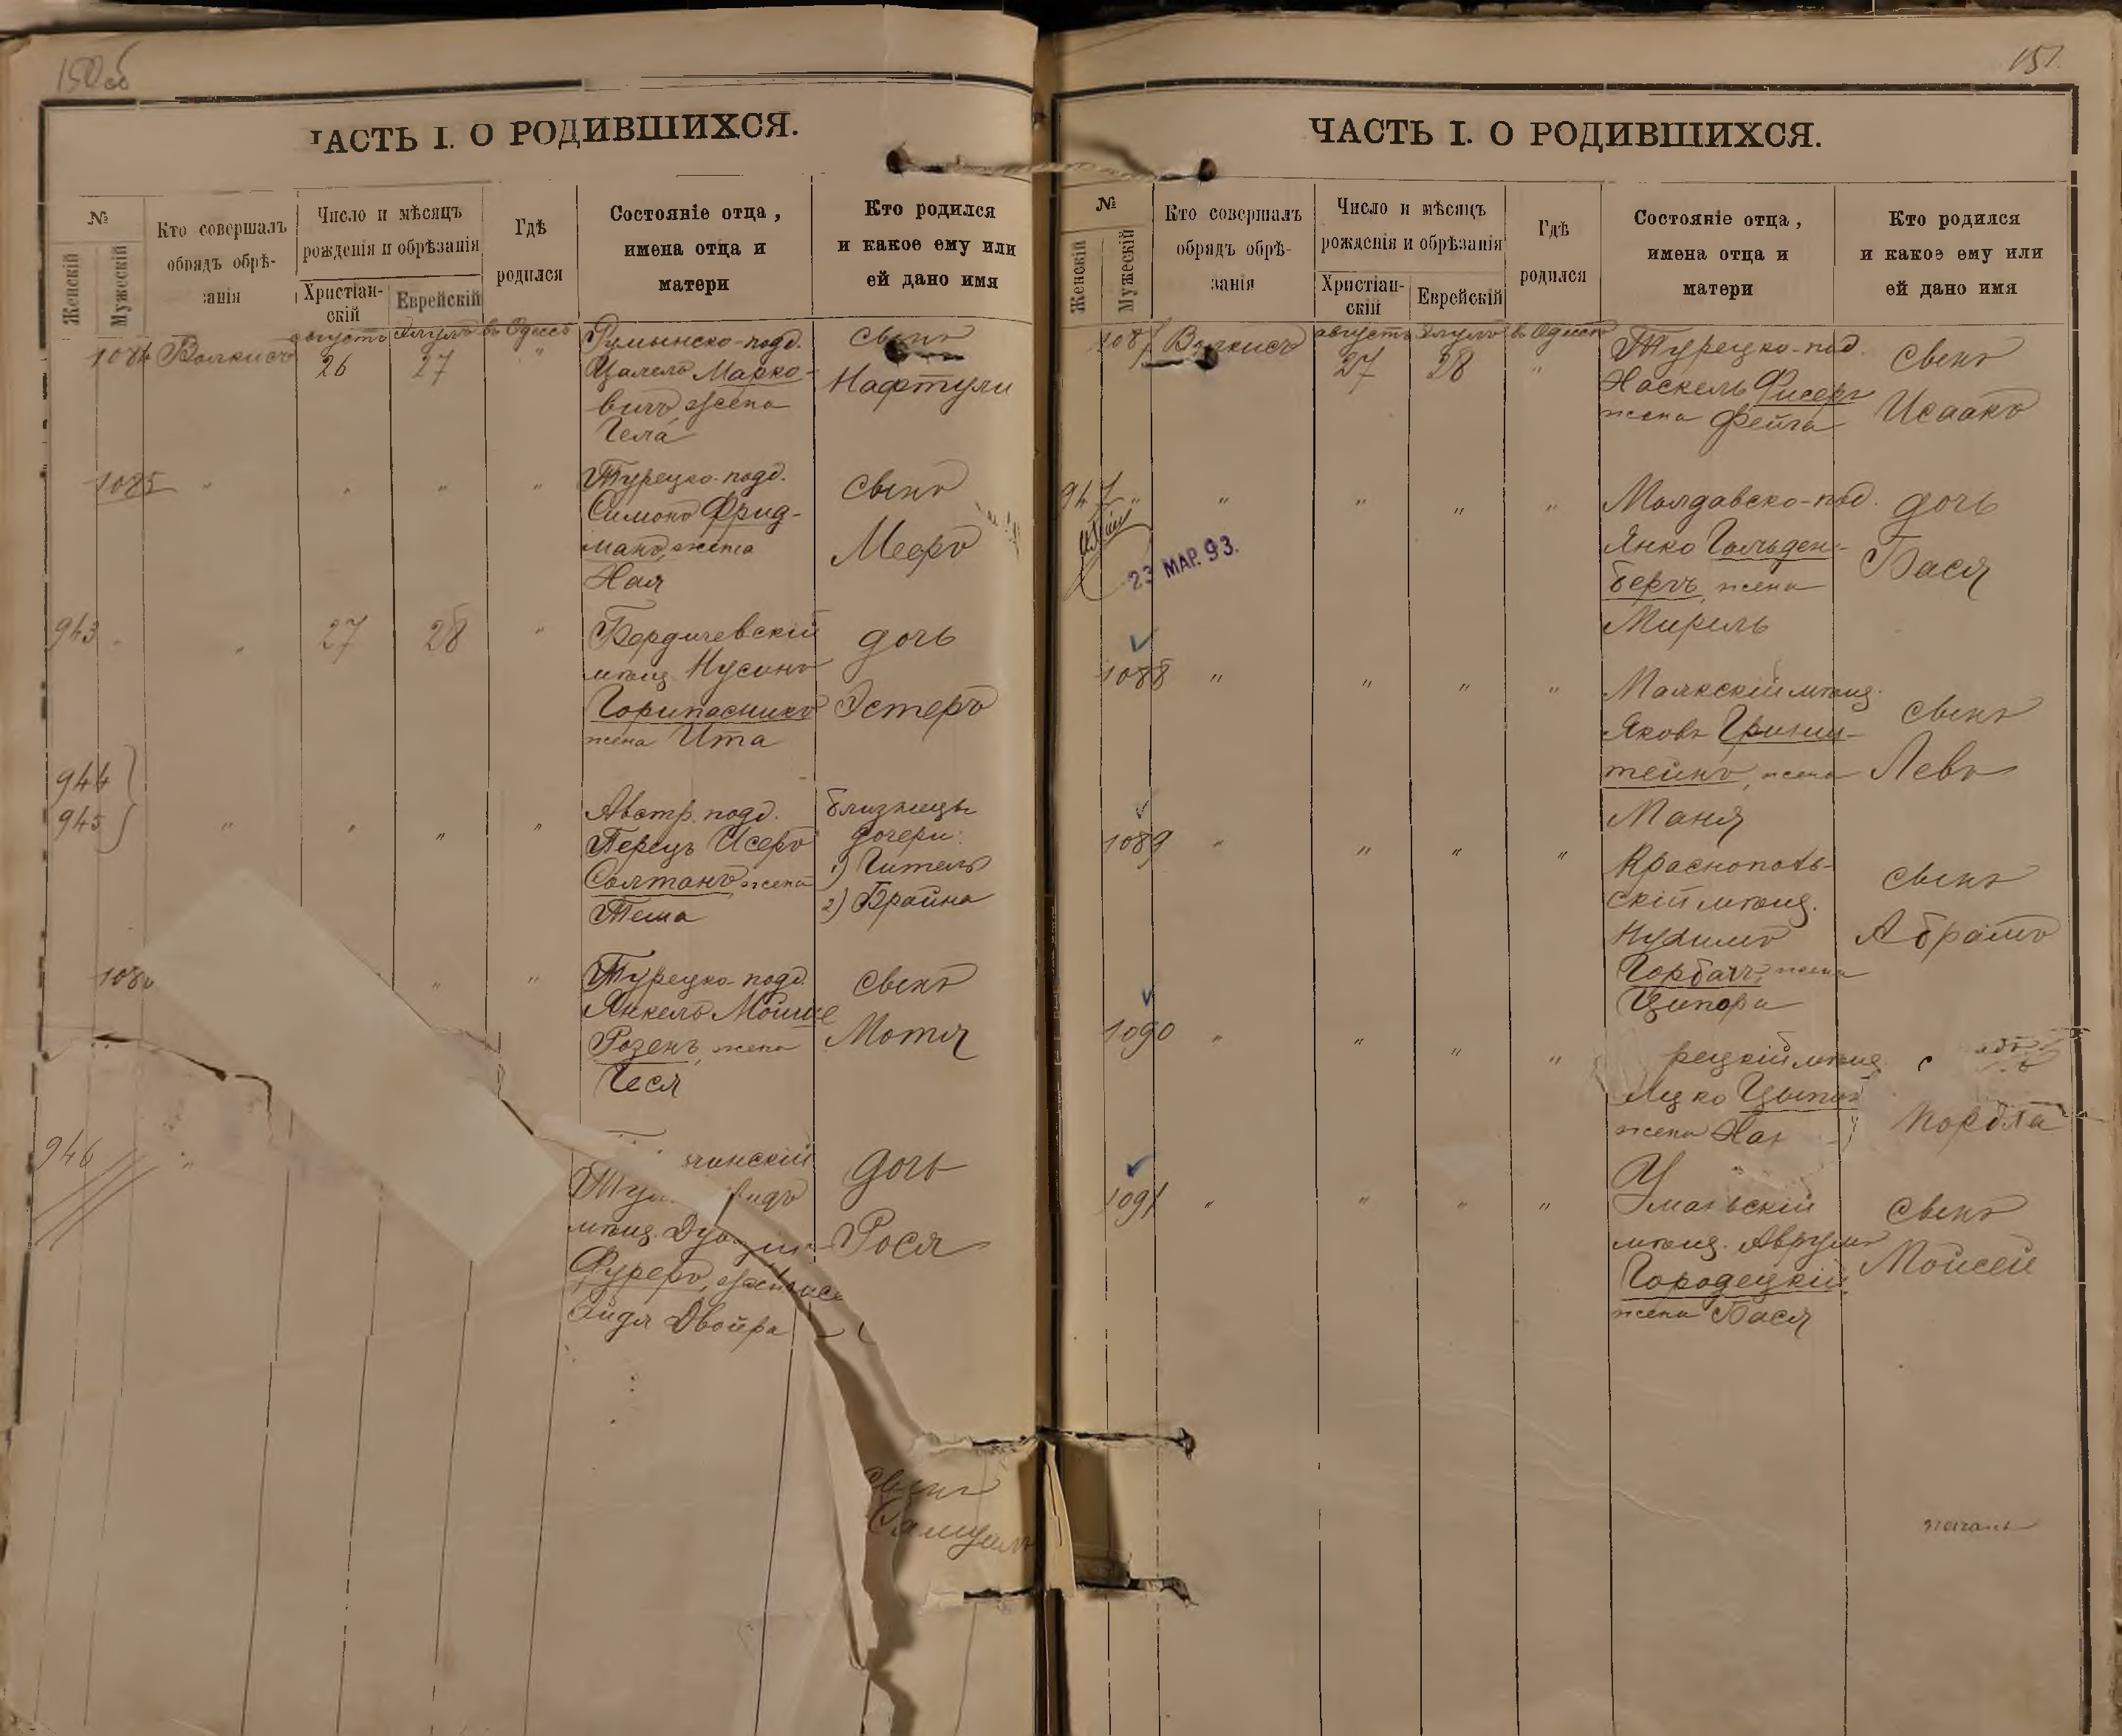 150об
ЧАСТЬ I. О РОДИВШИХСЯ.
№
Женскій
Мужескій
Кто совершалъ
обрядъ обрѣ-
занія
Число и мѣсяцъ
рожденія и обрѣзанія
Христіан-
скій
Еврейскій
Гдѣ
родился
Состояніе отца,
имена отца и
матери
Кто родился
и какое ему или
ей дано имя
августъ Элулъ въ Одессѣ
1084 Волкисъ 26 27 "
Румынско-подд.
Цалелъ Марко-
вичъ, жена
Гела
сынъ
Нафтули
1085 " " " "
Турецко-подд.
Симонъ Фрид-
манъ, жена
Хая
сынъ
Мееръ
943 " " 27 28 "
Бердичевскій
мѣщ. Нусинъ
Горипасникъ
жена Ита
дочь
Эстеръ
944
945 " " " "
Австр. подд.
Перецъ Исеръ
Солтанъ, жена
Теша
близнецы
дочери:
1) Гитель
2) Брайна
108
" "
Турецко-подд.
Янкель Мойше
Розенъ, жена
Геся
сынъ
Мотя
946 "
мѣщ.
Фуреръ, жена
Двойра
дочь
Рося
сынъ
Самуилъ
151
ЧАСТЬ I. О РОДИВШИХСЯ.
№
Женскій
Мужескій
Кто совершалъ
обрядъ обрѣ-
занія
Число и мѣсяцъ
рожденія и обрѣзанія
Христіан-
скій
Еврейскій
Гдѣ
родился
Состояніе отца,
имена отца и
матери
Кто родился
и какое ему или
ей дано имя
августъ Элулъ въ Одессѣ
1087 Волкисъ 27 28 "
Турецко-под.
Хаскель Фисеръ
жена Фейга
сынъ
Исаакъ
947 " " " " "
23 МАР. 93.
Молдавско-под.
Янко Гольден-
бергъ, жена
Мириль
дочь
Бася
1088 " " " "
Маякскій мѣщ.
Яковъ Гринш-
тейнъ, жена
Маня
сынъ
Левъ
1089 " " " "
Краснополь-
скій мѣщ.
Нухимъ
Горбачъ, жена
Ципора
сынъ
Абрамъ
1090 " " " "
рецкій мѣщ.
Ицко
жена
1091 " " " "
мѣщ. Аврумъ
Городецкій
жена Бася
сынъ
Мойсей